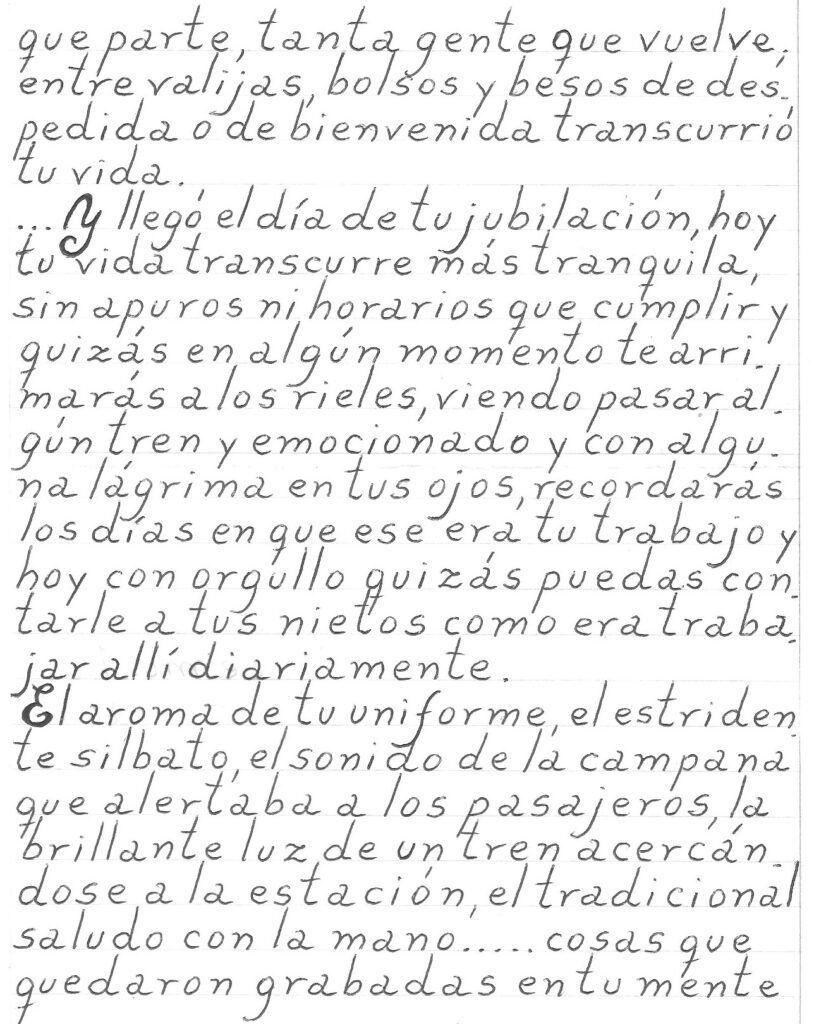 que parte, tanta gente que vuelve,
entre valijas, bolsos y besos de des-
pedida o de bienvenida transcurrió
tu vida.
...Y llegó el día de tu jubilación, hoy
tu vida transcurre más tranquila,
sin apuros ni horarios que cumplir y
quizás en algún momento te arri-
marás a los rieles, viendo pasar al-
gún tren y emocionado y con algu-
na lágrima en tus ojos, recordarás
los días en que ese era tu trabajo y
hoy con orgullo quizás puedas con-
tarle a tus nietos como era traba-
jar allí diariamente.
El aroma de tu uniforme, el estriden-
te silbato, el sonido de la campana
que alertaba a los pasajeros, la
brillante luz de un tren acercán-
dose a la estación, el tradicional
saludo con la mano..... cosas que
quedaron grabadas en tu mente